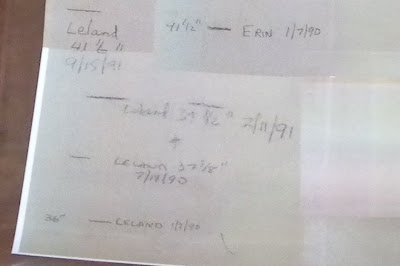 Leland
41 1/2 "
9/15/91
41 1/2" — ERIN 1/7/90
Leland 39 1/2 " 2/11/91
LELAND 37 1/2"
7/19/90
36" — LELAND 1/7/90